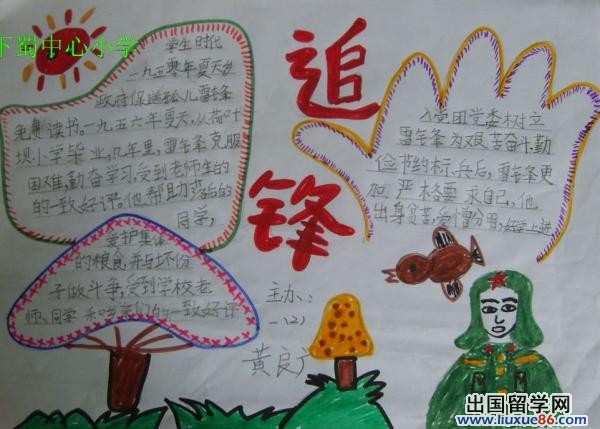 下蜀中心小学
学生时代
一九五零年夏天乡
政府保送孤儿雷锋
免费读书。一九五六年夏天,从荷叶
坝小学毕业,几年里,雷锋克服
困难,勤奋学习,受到老师生的
的一致好评。他帮助落后的
同学,
爱护集体
的粮食,并与坏份
子做斗争,受到学校老
师、同学和吃来们的一致好评
追
锋
入党团党委树立
雷锋为艰苦奋斗,勤
俭节约标兵后,雷锋更
加严格要求自己,他
出身贫苦,爱憎分明,好学上进
主办:
一(2)
黄良
出国留学网
www.liuxue86.com